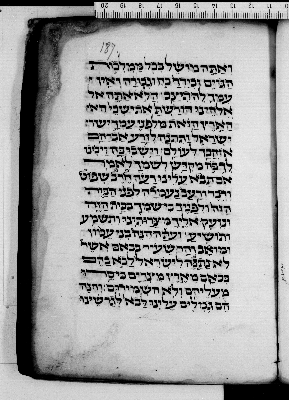 187.
ואתה מושל בכל ממלכות
הגוים ובידך כח וגבורה ואין
עמך להתיצב הלא אתה אל
אלהינו הורשת את ישבי
הארץ הזאת מלפני עמך יש
ישראל ותתנה לזרע אברהם
אוהבך לעולם וישבו בה ויבנו
לך בה מקדש לשמך לאמר
אם תבא עלינו רעה חרב שפוט
ודבר ורעב נעמדה לפני הבית
הזה ולפניך כי שמך בבית הזה
ונזעק אליך מצרתינו ותשמע
ותושיע ועתה הנה בני עמון
ומואב והר שעיר אשר
לא נתתה לישראל לבא בהם
בבאם מארץ מצרים כי סרו
מעליהם ולא השמידום והנה
הם גומלים עלינו לבא לגרשינו